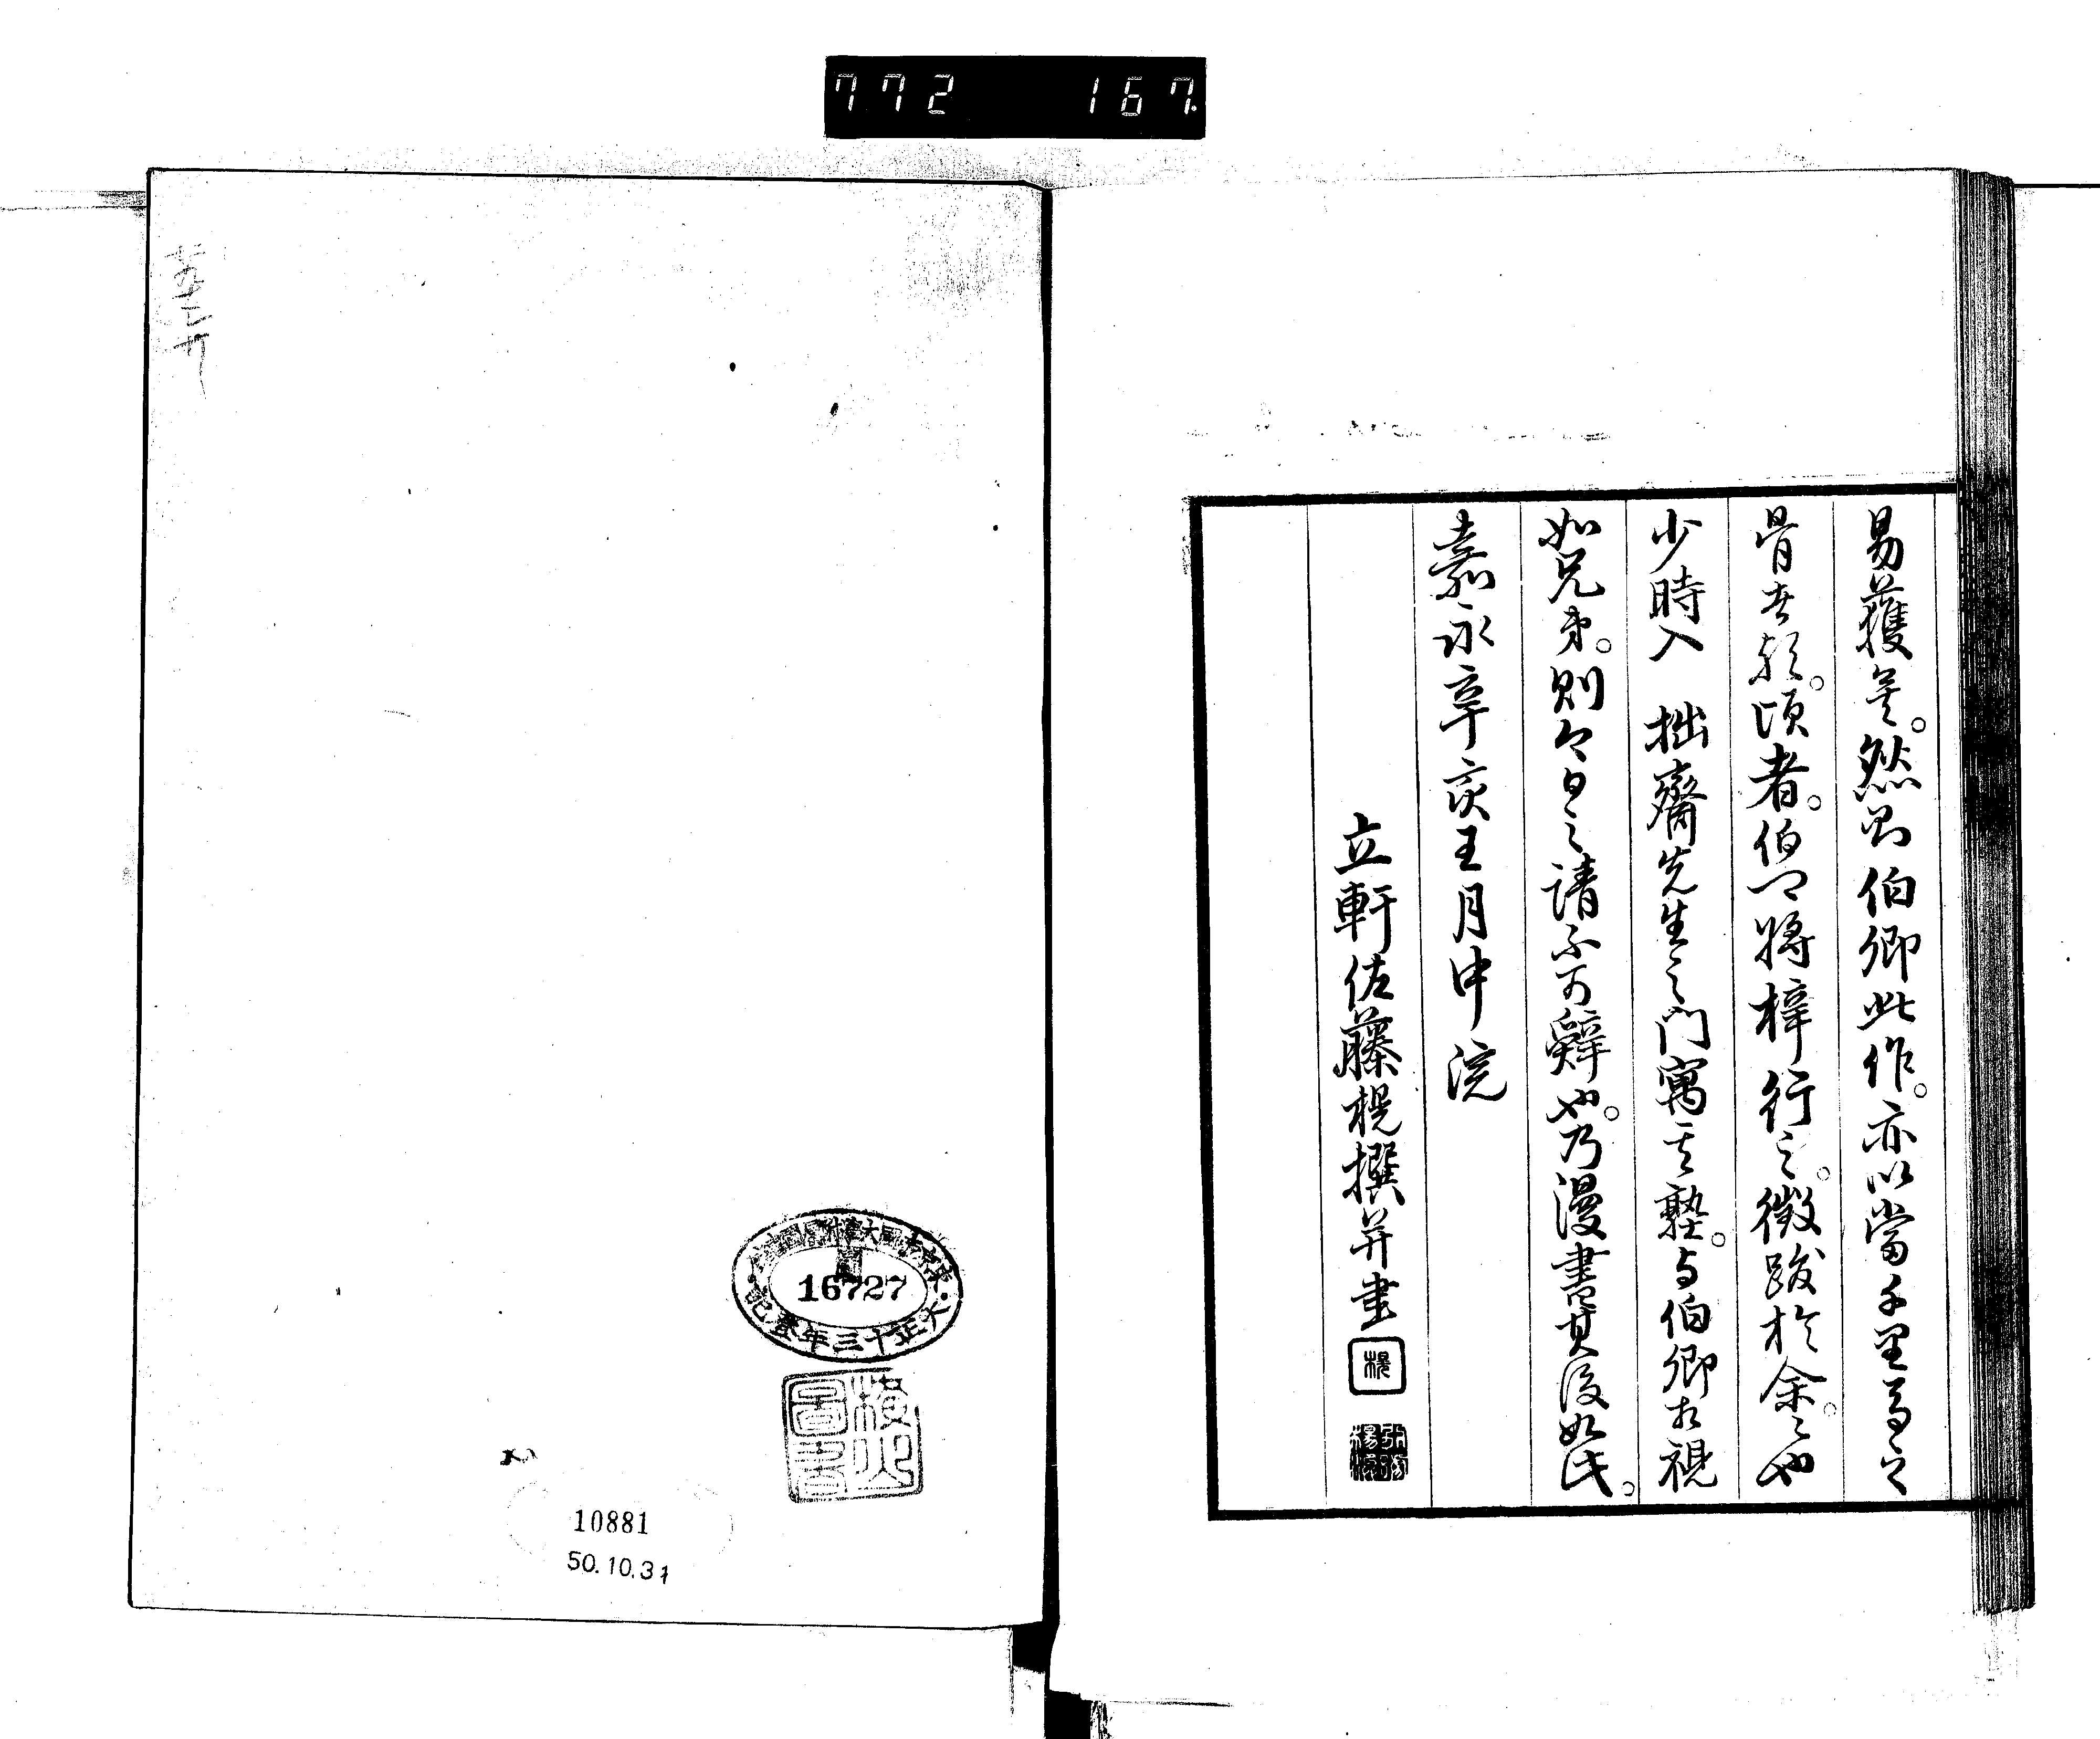 772 167.
易獲矣。然則伯卿此作。亦以當千里馬之
骨者歟。頃者。伯卿將梓行之。徵跋於余。々也
少時入 拙齋先生之門寓其塾。与伯卿相視
如兄弟。則今日之請不可辭也。乃漫書其後如此。
嘉永辛亥王月中浣
立軒佐藤榥撰并書
榥
16727
大正十三年登記
圖書
10881
50.10.31